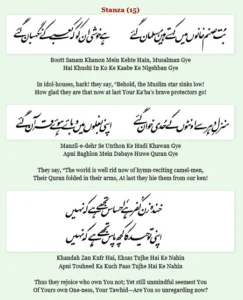 Stanza (15)
بت صنم خانوں میں کہتے ہیں مسلمان گئے
ہے خوشی ان کو کہ کعبے کے نگہبان گئے
Boott Sanam Khanon Mein Kehte Hain, Musalman Gye
Hai Khushi In Ko Ke Kaabe Ke Nigehban Gye
In idol-houses, hark! they say, "Behold, the Muslim star sinks low!
How glad they are that now at last Your Ka'ba's brave protectors go!
منزل دہر سے اونٹوں کے حدی خوان گئے
اپنی بغلوں میں دبائے ہوئے قرآن گئے
Manzil-e-dehr Se Unthon Ke Hudi Khawan Gye
Apni Baghlon Mein Dabaye Huwe Quran Gye
They say, "The world is well rid now of hymn-reciting camel-men,
Their Quran folded in their arms, At last they hie them from our ken!
خندہ زن کفر ہے، احساس تجھے ہے کہ نہیں
اپنی توحید کا کچھ پاس تجھے ہے کہ نہیں
Khandah Zan Kufr Hai, Ehsas Tujhe Hai Ke Nahin
Apni Touheed Ka Kuch Paas Tujhe Hai Ke Nahin
Thus they rejoice who own You not; Yet still unmindful seemest You
Of Yours own One-ness, Your Tawhid—Are You so unregarding now?